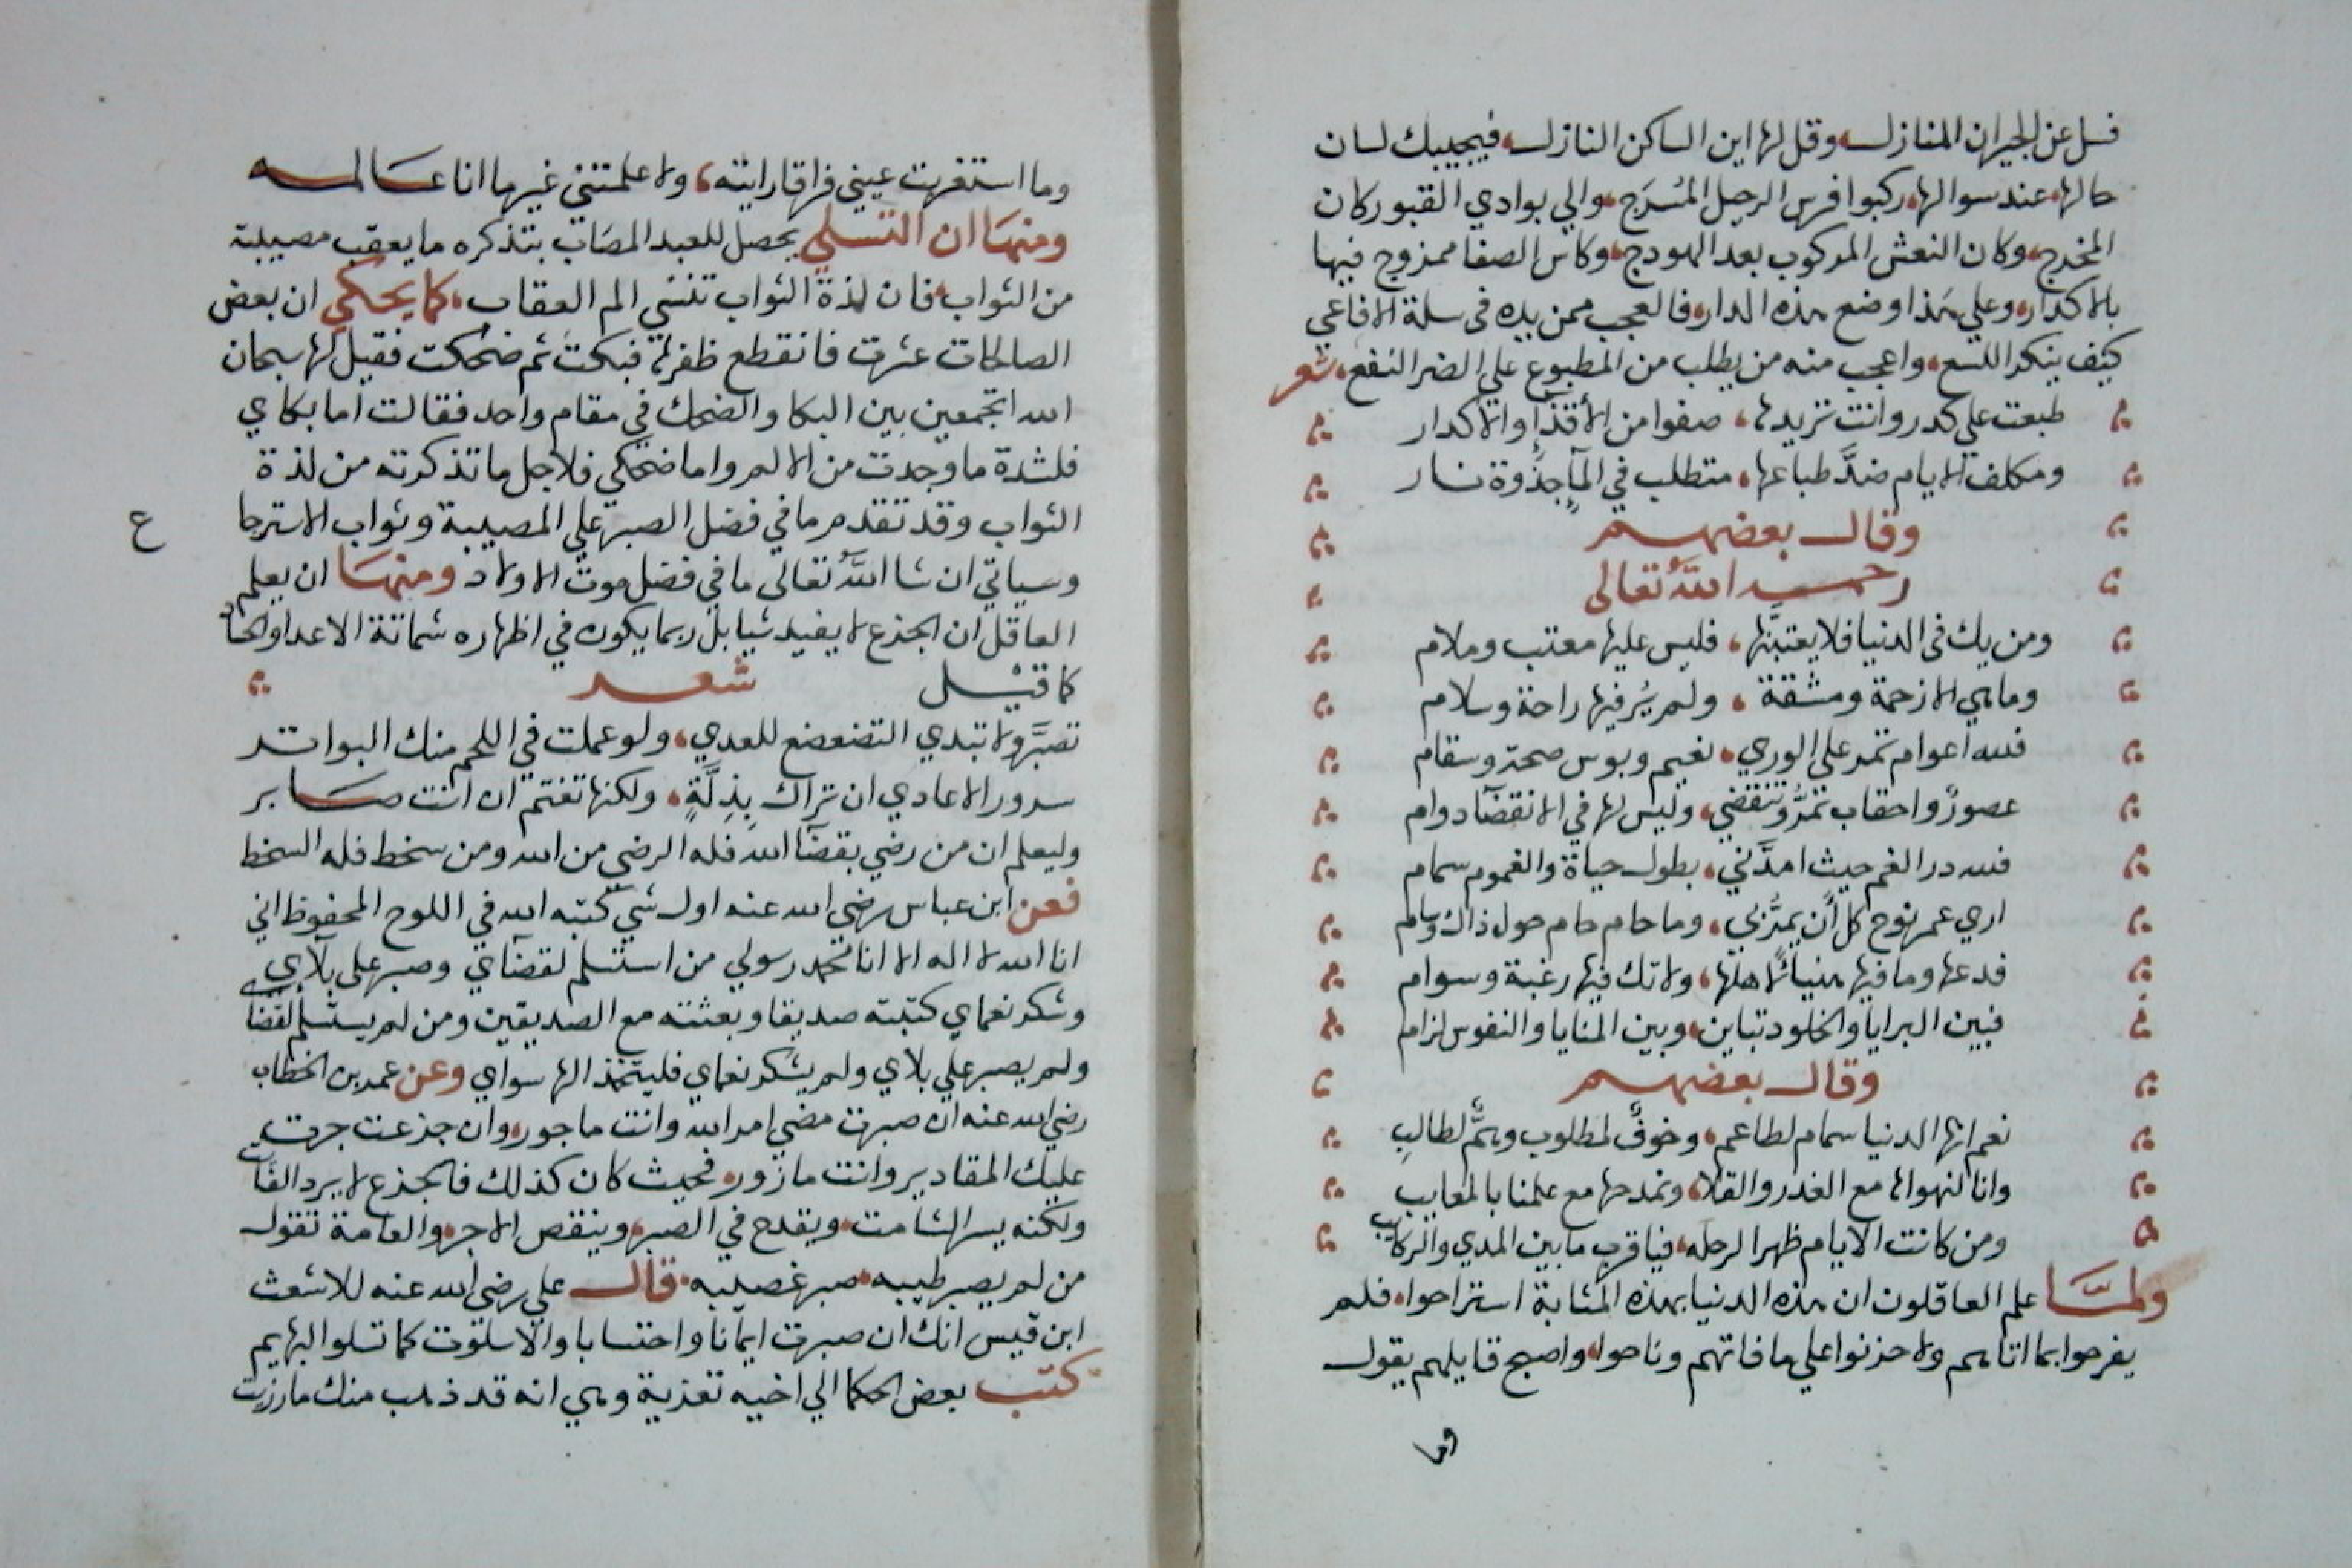 فسل عن الجيران المنازل، وقل لها اين الساكن النازل، فيجيبك لسان
حالها، عند سوالها، ركبوا فرس الرحيل المُسرَج، والي بوادي القبور كان
المخرج، وكان النعش المركوب بعد الهودج، وكاس الصفا ممزوج فيها
بالاكدار، وعلي هَذا وضع هذه الدار، فالعجب ممن يده في سلة الافاعي
كيف ينكر اللسع، واعجب منه من يطلب من المطبوع علي الضر النفع، شعر
طبعت علي كدر وانت تريدها، صفوا من الأقذاءِ والاكدار
ومكلف الايام ضدَّ طباعها، متطلب في المآءِ جذوة نار
وقال بعضهم
رحمه اللّٰه تعالى
ومن يك في الدنيا فلا يعتبنَّها، فليس عليها معتب وملام
وما هي الا زحمة ومشقة، ولم يُر فيها راحة وسلام
فلله اعوام تمر علي الوري، نعيم وبوس صحة وسقام
عصورٌ واحقاب تمرُّ وتنقضي، وليس لها في الانقضآ دوام
فلله در الغم حيث امدَّني، بطول حياة والغموم سمام
اري عمر نوح كل أن يمرُّ بي، وما حام حام حول ذاك وسام
فدعها وما فيها هنيـًٔا لاهلها، ولا تك فيها رغبة وسوام
فبين البرايا والخلود تباين، وبين المنايا والنفوس لزام
وقال بعضهم
نعم انها الدنيا سمام لطاعم، وخوفٌ لمطلوب وهمٌّ لطالبِ
وانا لنهواها مع الغدر والقلا، ونمدحها مع علمنا بالمعايب
ومن كانت الايام ظهرا لرحله، فيا قرب ما بين المدي والركايب
ولمَّا علم العاقلون ان هذه الدنيا بهذه المثابة استراحوا، فلم
يفرحوا بما اتاهم ولا حزنوا علي ما فاتهم وناحوا، واصبح قايلهم يقول
وما
وما استغربت عيني فراقا رايته، ولا علمتني غير ما انا عَالمه
ومنهَا ان التسلي يحصل للعبد المصَاب بتذكره ما يعقب مصيبته
من الثواب، فان لذة الثواب تنسي الم العقاب، كما يحكي ان بعض
الصالحات عثرت فانقطع ظفرها فبكت ثم ضحكت فقيل لها سبحان
الله اتجمعين بين البكا والضحك في مقام واحد فقالت اما بكاي
فلشدة ما وجدت من الالم واما ضحكي فلاجل ما تذكرته من لذة
الثواب وقد تقدم ما في فضل الصبر علي المصيبة وثواب الاسترجا
ع
وسياتي ان شا اللّٰه تعالى ما في فضل موت الاولاد ومنهَا ان يعلم
العاقل ان الجزع لا يفيد شيا بل ربما يكون في اظهاره شماتة الاعدا والحساد
كما قيْل شعر
تصبَّر ولا تبدي التضعضع للعدي، ولو عملت في اللحم منك البواتر
سرور الاعادي ان تراك بِذِلَّةٍ، ولكنها تغتم ان انت صَابر
وليعلم ان من رضي بقضآ الله فله الرضي من الله ومن سخط فله السخط
فعن ابن عباس رضي الله عنه اول شي كتبه الله في اللوح المحفوظ اني
انا الله لا اله الا انا محمد رسولي من استسلم لقضآي وصبر على بلآي
وشكر نعماي كتبته صديقا وبعثته مع الصديقين ومن لم يستسلم لقضآي
ولم يصبر علي بلاي ولم يشكر نعماي فليتخذ الها سواي وعن عمر بن الخطاب
رضي الله عنه ان صبرت مضي امر الله وانت ماجور، وان جزعت جرت
عليك المقادير وانت مازور، فحيث كان كذلك فالجزع لا يرد الفآيت
ولكنه يسر الشامت، ويقدح في الصبر، وينقص الاجر، والعامة تقول
من لم يصبر طيبه، صبر غصيبه، قال علي رضي الله عنه للاشعث
ابن قيس انك ان صبرت ايمانا واحتسابا والا سلوت كما تسلو البهايم
كتب بعض الحكما الي اخيه تعزية وهي انه قد ذهب منك ما رزيت